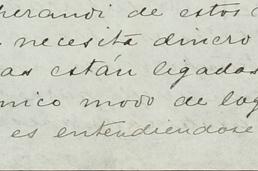 herandi de estos
necesita dinero
as están ligadas
nico modo de log
es entendiendose